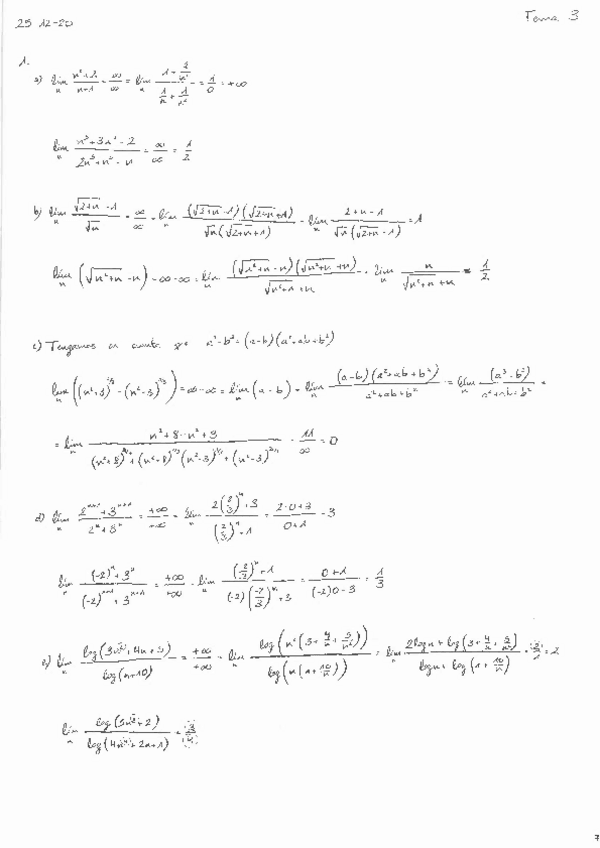 25-12-20
Tema 3
1.
a) lim_n (n²+2)/(n+1) = ∞/∞ = lim_n (1+2/n²)/(1/n+1/n²) = 1/0 = +∞
lim_n (n³+3n²-2)/(2n³+n²-n) = ∞/∞ = 1/2
b) lim_n (√(2+n)-1)/√n = ∞/∞ = lim_n ((√(2+n)-1)(√(2+n)+1))/(√n(√(2+n)+1)) = lim_n (2+n-1)/(√n(√(2+n)-1)) = 1
lim_n (√(n²+n)-n) = ∞-∞ = lim_n ((√(n²+n)-n)(√(n²+n)+n))/(√(n²+n)+n) = lim_n n/(√(n²+n)+n) = 1/2
c) Tengamos en cuenta que a³-b³=(a-b)(a²+ab+b²)
lim_n ((n²+8)^(1/3)-(n²-3)^(1/3)) = ∞-∞ = lim_n (a-b) = lim_n ((a-b)(a²+ab+b²))/(a²+ab+b²) = lim_n (a³-b³)/(a²+ab+b²) =
= lim_n (n²+8-n²+3)/((n²+8)^(2/3)+(n²+8)^(1/3)(n²-3)^(1/3)+(n²-3)^(2/3)) = 11/∞ = 0
d) lim_n (2^(n+1)+3^(n+1))/(2^n+3^n) = +∞/+∞ = lim_n (2(2/3)^n+3)/((2/3)^n+1) = (2·0+3)/(0+1) = 3
lim_n ((-2)^n+3^n)/((-2)^(n+1)+3^(n+1)) = +∞/+∞ = lim_n ((-2/3)^n+1)/((-2)(-2/3)^n+3) = (0+1)/((-2)0-3) = 1/3
e) lim_n log(3n²+4n+5)/log(n+10) = +∞/+∞ = lim_n log(n²(3+4/n+5/n²))/log(n(1+10/n)) = lim_n (2logn+log(3+4/n+5/n²))/(logn+log(1+10/n)) = 2
lim_n log(5n³+2)/log(4n⁴+2n+1) = 3/4
7